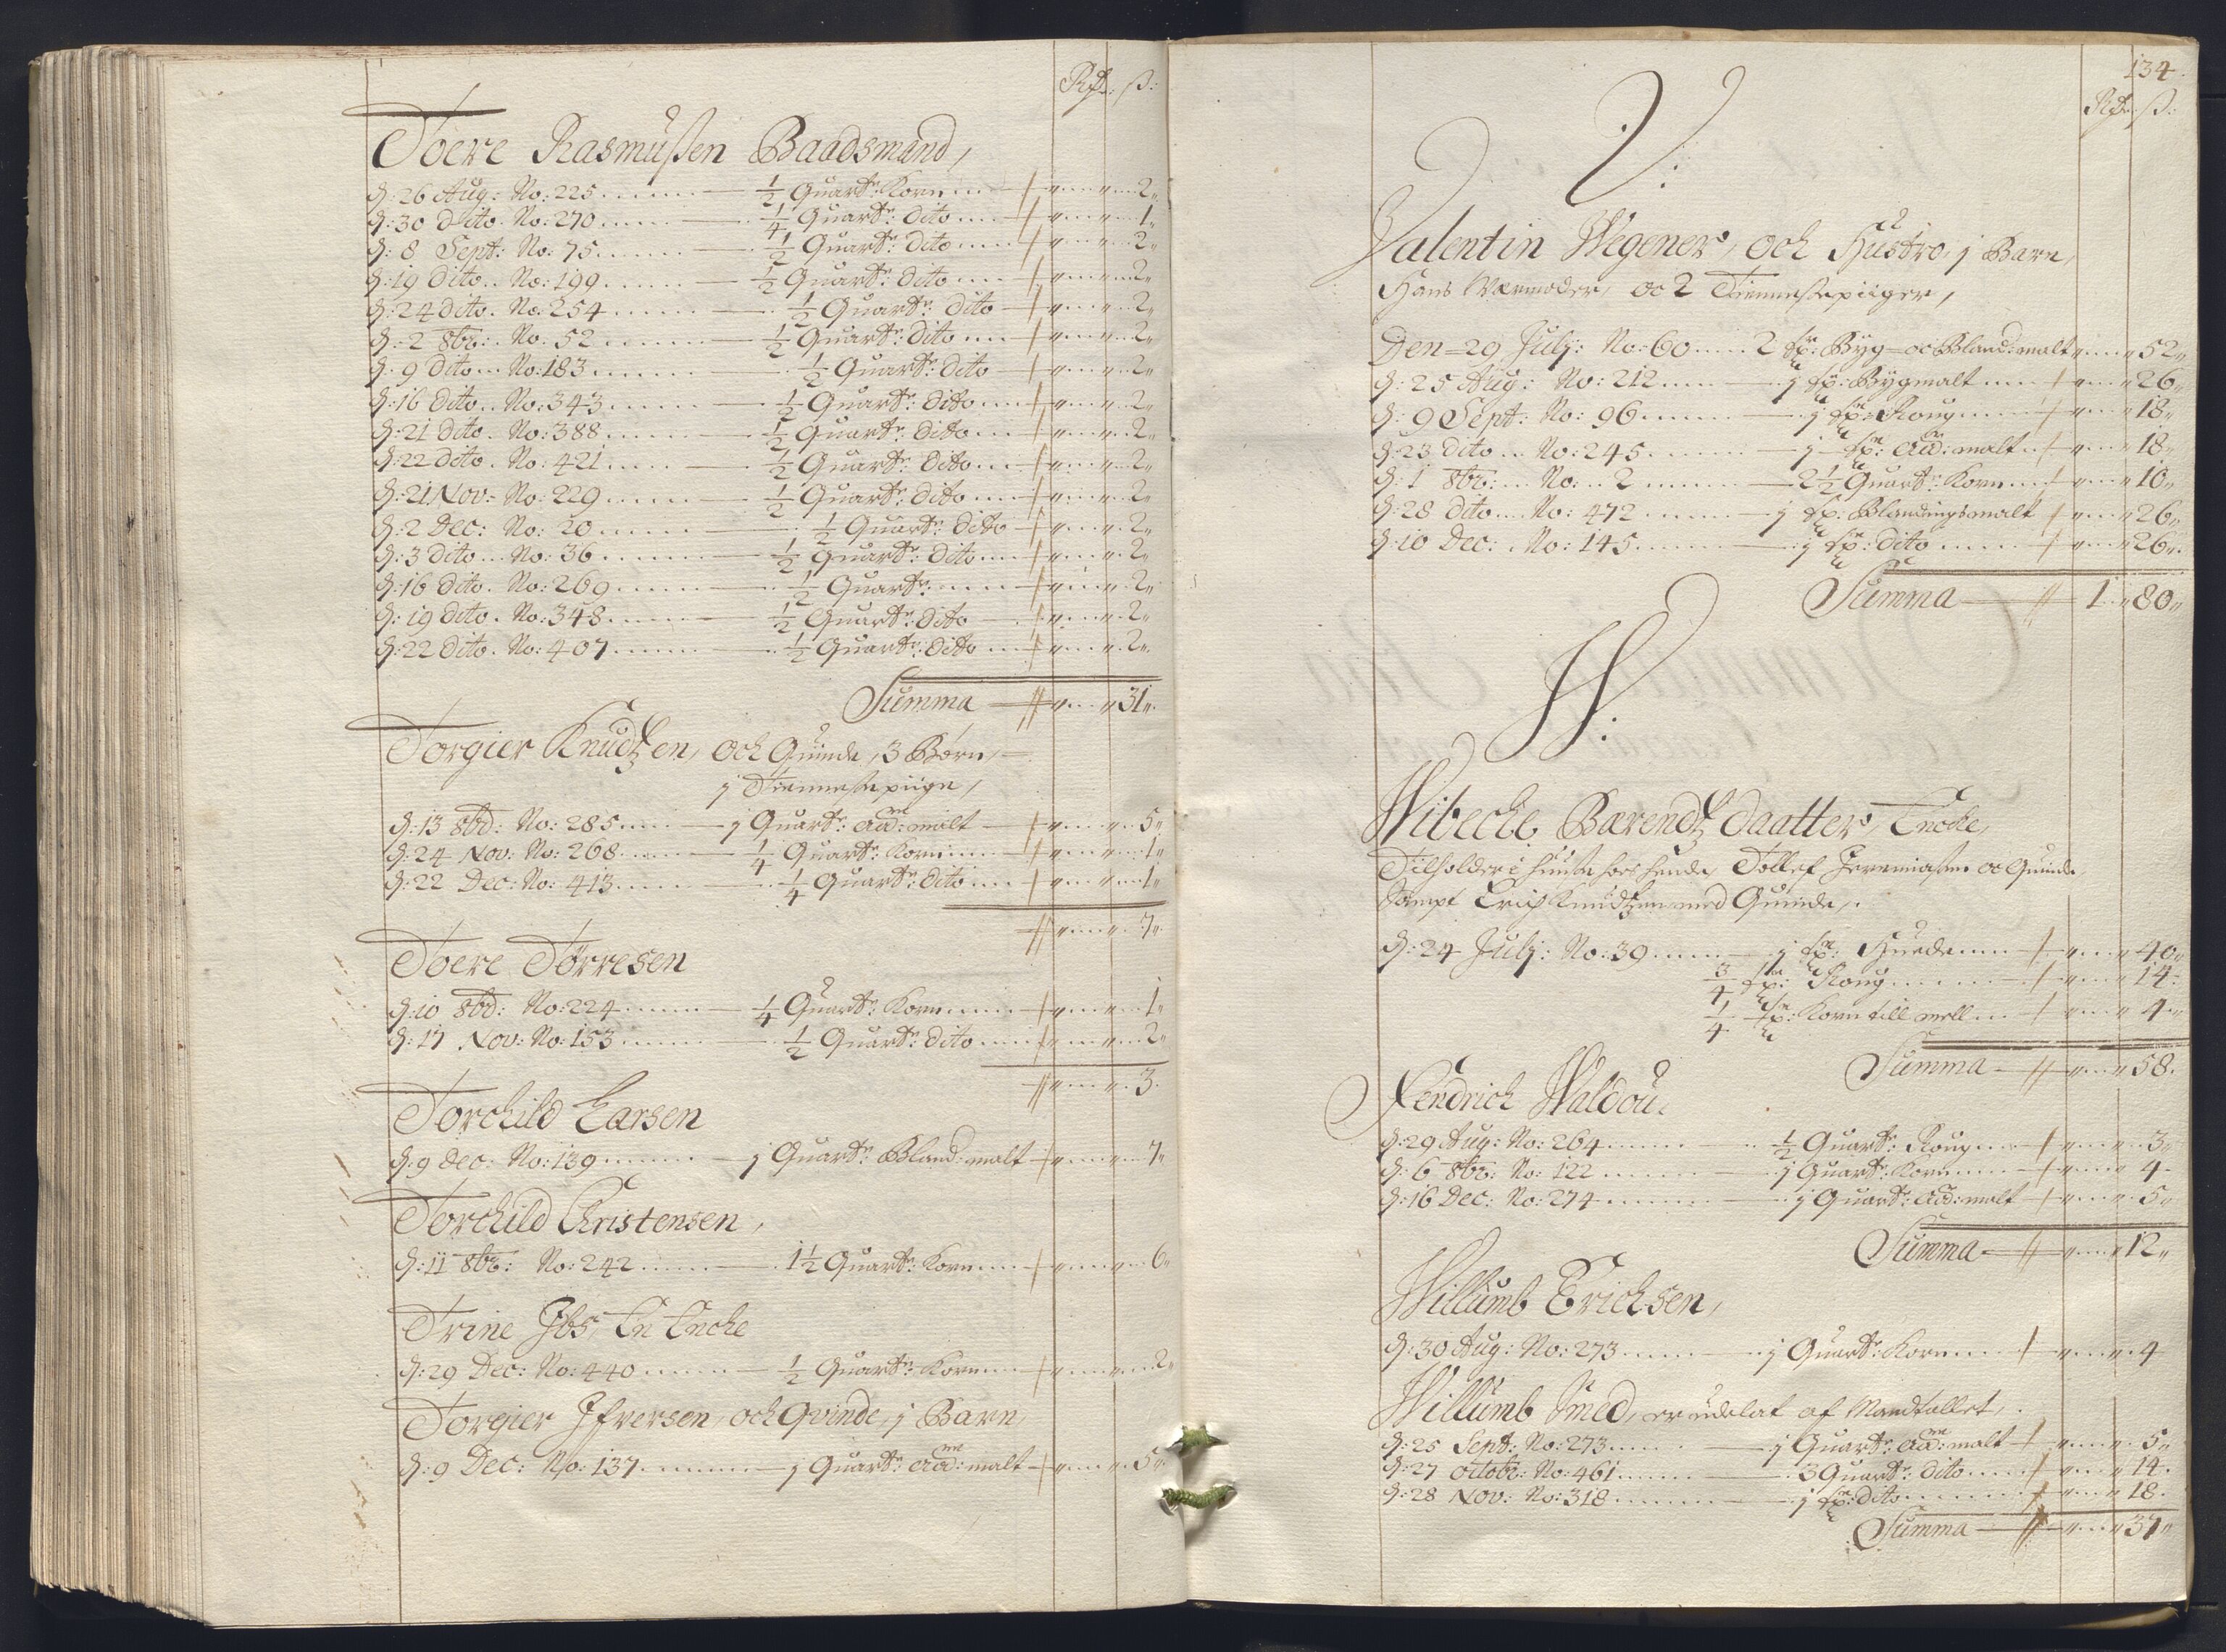 Rdr: ß:
Toere Rasmußen Baadsmand,
d: 26 Aug: No: 225 ...... ½ Quartr: Korn ... 2
d: 30 Dito. No: 270 ...... ¼ Quartr: dito ... 1
d: 8 Sept: No: 75 ...... ½ Quartr: dito ... 2
d: 19 dito. No: 199 ...... ½ Quartr: dito ... 2
d: 24 dito. No: 254 ...... ½ Quartr: dito ... 2
d: 2 8br: No: 52 ...... ½ Quartr: dito ... 2
d: 9 dito. No: 183 ...... ½ Quartr: dito ... 2
d: 16 dito. No: 343 ...... ½ Quartr: dito ... 2
d: 21 dito. No: 388 ...... ½ Quartr: dito ... 2
d: 22 dito. No: 421 ...... ½ Quartr: dito ... 2
d: 21 Nov: No: 229 ...... ½ Quartr: dito ... 2
d: 2 Dec: No: 20 ...... ½ Quartr: dito ... 2
d: 3 dito. No: 36 ...... ½ Quartr: dito ... 2
d: 16 dito. No: 269 ...... ½ Quartr: ... 2
d: 19 dito. No: 348 ...... ½ Quartr: dito ... 2
d: 22 dito. No: 407 ...... ½ Quartr: dito ... 2
Summa 31
Torgier Knudtzen, och Quinde, 3 Børn,
j Tiennestepiige,
d: 13 8bd: No: 285 ...... j Quartr: aad: malt ... 5
d: 24 Nov: No: 268 ...... ¼ Quartr: Korn ... 1
d: 22 Dec: No: 413 ...... ¼ Quartr: dito ... 1
7
Toere Tørresen
d: 10 8bd: No: 224 ...... ¼ Quartr: Korn ... 1
d: 17 Nov: No: 153 ...... ½ Quartr: dito ... 2
3
Torchild Larsen
d: 9 Dec: No: 139 ...... j Quartr: Bland: malt ... 7
Torchild Christensen,
d: 11 8br: No: 242 ...... 1½ Quartr: Korn ... 6
Trine Ibs, En Encke
d: 29 Dec: No: 440 ...... ½ Quartr: Korn ... 2
Torgier Ifversen, och Qvinde, j Barn
d: 9 Dec: No: 137 ...... j Quartr: aad: malt ... 5
134.
Rdr: ß:
V:
Valentin Wegener, och Hustro, j Barn,
Hans Værmoder, oc 2 Tiennestepiiger,
Den 29 Julj: No: 60 ... 2 sp: Byg- oc Bland: malt ... 52
d: 25 Aug: No: 212 ...... j sp: Bygmalt ... 26
d: 9 Sept: No: 96 ...... j sp: Roug ... 18
d: 23 dito. No: 245 ...... j sp: aad: malt ... 18
d: 1 8br: No: 2 ...... 2½ Quartr: Korn ... 10
d: 28 dito. No: 472 ...... j sp: Blandingsmalt ... 26
d: 10 Dec: No: 145 ...... j sp: dito ... 26
Summa 1 80
W:
Wibeche Barendtz daatter, Encke,
Tilholder i huuset hos hende, Tollef Jeremiasen oc Quinde
Sampt Erich Knudtzen med Quinde,
d: 24 Julj: No: 39 ...... j sp: Huede ... 40
¾ sp: Roug ... 14
¼ sp: Korn till mell ... 4
Summa 58
Hendrich Waldou,
d: 29 Aug: No: 264 ...... ½ Quartr: Roug ... 3
d: 6 8br: No: 122 ...... j Quartr: Korn ... 4
d: 16 Dec: No: 274 ...... j Quartr: aad: malt ... 5
Summa 12
Willumb Erichsen,
d: 30 Aug: No: 273 ...... j Quartr: Korn ... 4
Willumb Smed, er udelat af Mandtallet,
d: 25 Sept: No: 273 ...... j Quartr: aad: malt ... 5
d: 27 octobr: No: 461 ...... 3 Quartr: dito ... 14
d: 28 Nov: No: 318 ...... j sp: dito ... 18
Summa 37